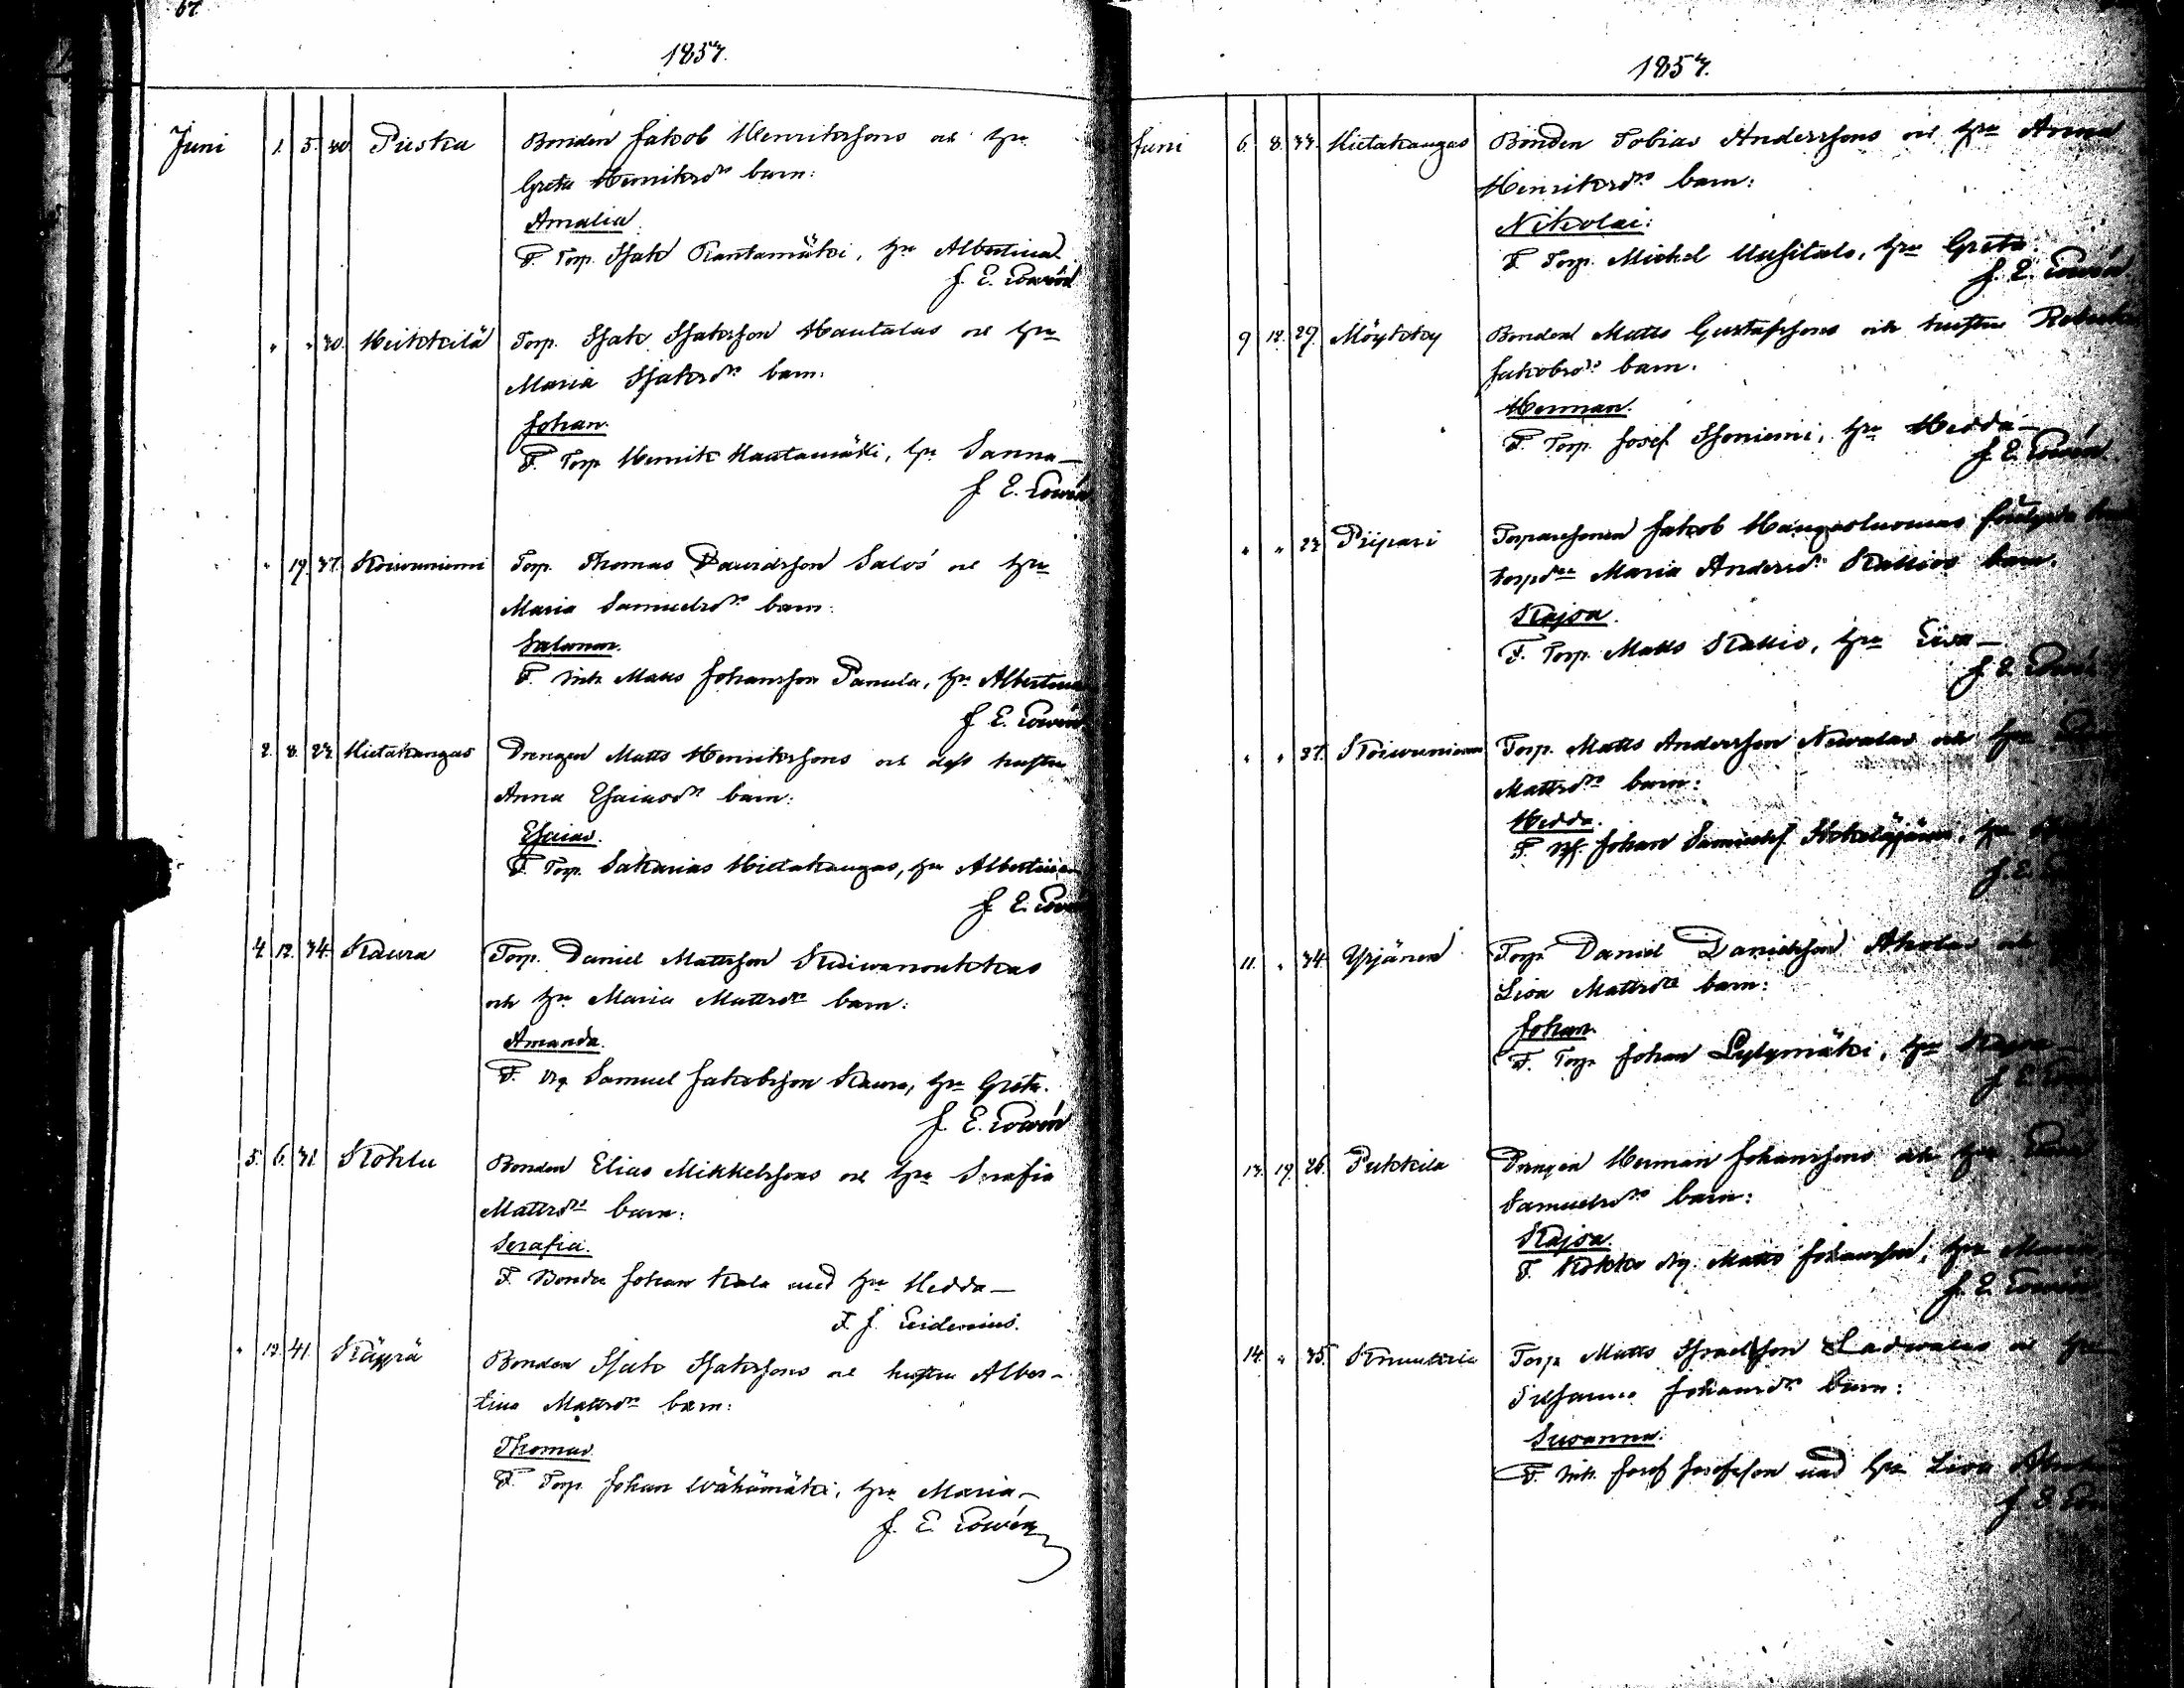 67
1857.
Juni 1. 5. 40 Puska Bonden Jakob Henrikssons och hu
Greta Henriksdr barn:
Amalia
F. Torp. Isak Rantamäki, hu Albertina
J. E. Cowén
" " 40. Heikkilä Torp. Isak Isaksson Hautalas och hu
Maria Isaksdr barn:
Johan.
F. Torp Henrik Hautamäki, hu Sanna—
J. E. Cowén
" 19. 37. Koivuniemi Torp. Thomas Davidsson Salos och hu
Maria Samuelsdr barn:
Salomon.
F. Inh Matts Johansson Panula, hu Albertina
J. E. Cowén
2. 8. 23 Hietakangas Drengen Matts Henrikssons och dess hustru
Anna Esaiasdr barn:
Esaias.
F. Torp. Sakarias Hietakangas, hu Albertina
J. E. Cowén
4 12. 34. Kaura Torp. Daniel Mattsson Koivunoukkas
och hu Maria Mattsdr barn:
Amanda.
F. drg Samuel Jakobsson Kaura, hu Greta.
J. E. Cowén
5. 6. 31. Kohlu Bonden Elias Mikkelssons och hu Serafia
Mattsdr barn:
Serafia.
F. Bonden Johan Kala med hu Hedda—
F. J. Eidenius.
" 12. 41. Käyrä Bonden Isak Isakssons och hustru Alber-
tina Mattsdr barn:
Thomas
F. Torp. Johan Wähämäki, hu Maria—
J. E. Cowén
1857.
Juni 6. 8. 33. Hietakangas Bonden Tobias Anderssons och hu Anna
Henriksdr barn:
Nikolai:
F. Torp. Michel Uusitalo, hu Greta
J. E. Cowén
9 12. 29. Möykky Bonden Matts Gustafssons och hustru
Jakobsdr barn.
Herman.
F. Torp. Josef Isoniemi, hu Hedda—
J. E. Cowén
" " 23 Pripari Torparesonen Jakob Hangasluomas
torpdr Maria Andersdr Kallios barn.
Kajsa.
F. Torp. Matts Kallio, hu Lisa—
J. E. Cowén
" " 37. Koivuniemi Torp. Matts Andersson Nevalas och hu
Mattsdr barn:
Hedda.
F. Johan Samuelss Kokkojärvi, hu
J. E.
11. " 34 Yrjänen Torp. Daniel Danielsson Aholas och
Lisa Mattsdr barn:
Johan
F. Torp. Johan Lylymäki, hu Kajsa
J. E. Cowén
13. 19. 26. Pukkila Drengen Herman Johanssons och hu
Samuelsdr barn:
Kajsa.
F. Kokko drg. Matts Johansson, hu Maria
J. E. Cowén
14. " 35. Knuutila Torp. Matts Israelsson Ladvalas och hu
Susanna Johansdr barn:
Susanna.
F. Inh. Josef Josefsson med hu Lisa
J. E.